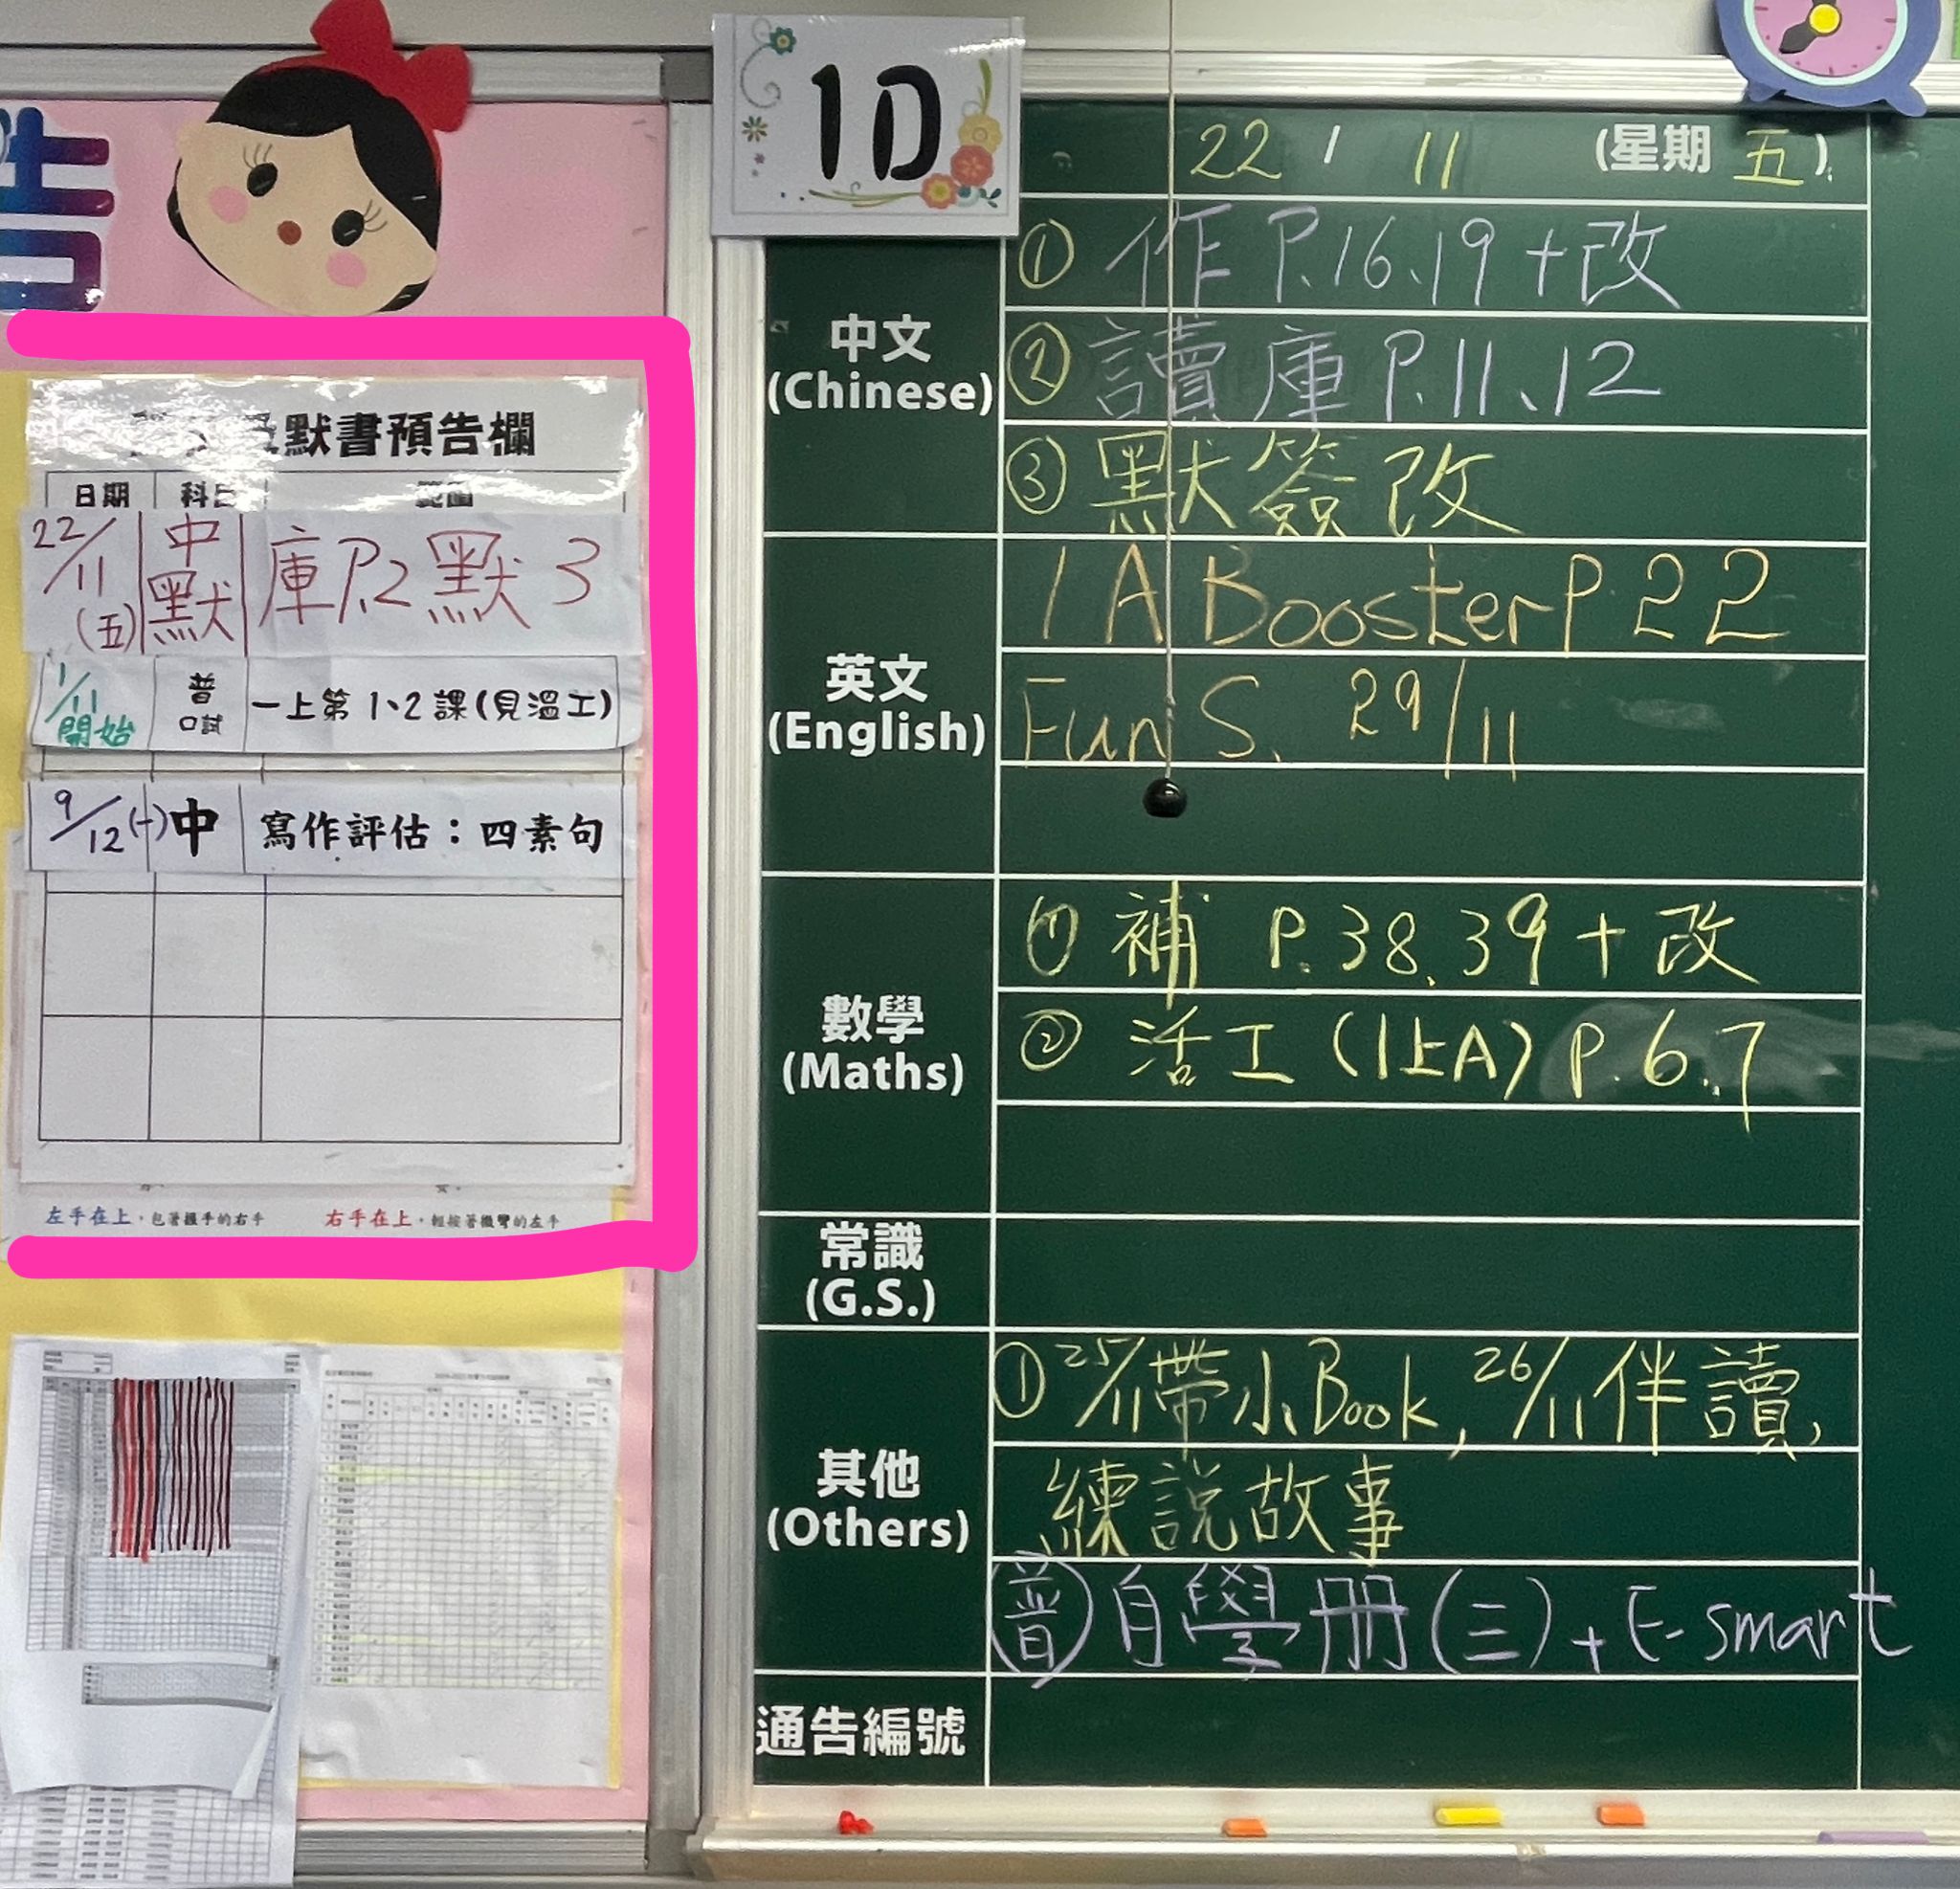 告
默書預告欄
日期 科目 範圍
22/11(五) 中默 庫P.2默3
1/11開始 普口試 一上第1、2課(見溫工)
9/12(一) 中 寫作評估：四素句
左手在上，包著握手的右手 右手在上，輕按著微彎的左手
1D
22 / 11 (星期 五)
中文
(Chinese)
① 作 P.16、19+改
② 讀庫 P.11、12
③ 默簽改
英文
(English)
1A Booster P.22
Fun S. 29/11
數學
(Maths)
① 補 P.38、39+改
② 活工(1上A) P.6、7
常識
(G.S.)
其他
(Others)
① 25/11帶小Book, 26/11伴讀,
練說故事
(普)自學冊(三)+E-smart
通告編號